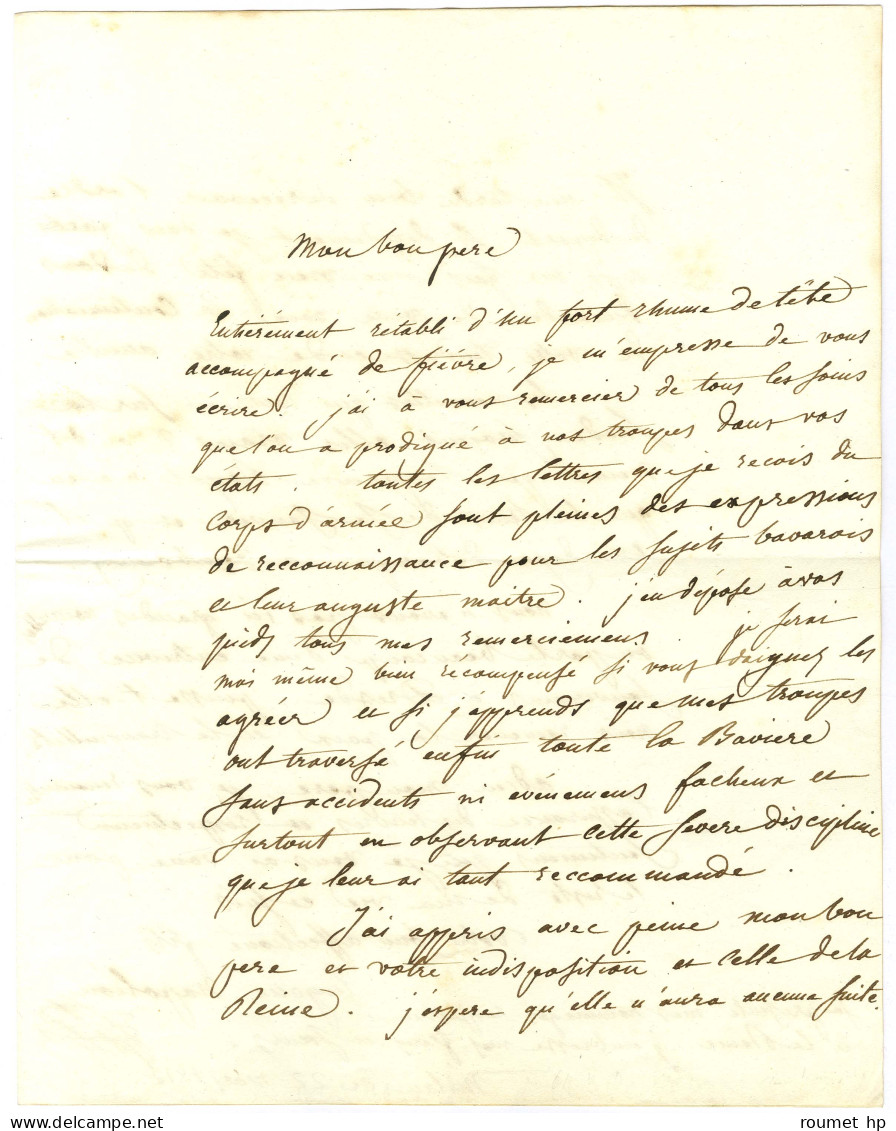 Mon bon pere
Entièrement rétabli d'un fort rhume de tête
accompagné de fiévre, je m'empresse de vous
écrire. j'ai à vous remercier de tous les soins
que l'on a prodigué à nos troupes dans vos
états. toutes les lettres que je recois du
Corps d'armée sont pleines des expressions
de reconnaissance pour les sujets bavarois
et leur auguste maitre. j'en dépose à vos
pieds tous mes remerciemens. je serai
moi même bien récompensé si vous daignez les
agréer et si j'apprends que mes troupes
ont traversé enfin toute la Baviere
sans accidents ni evénemens facheux et
surtout en observant cette severe discipline
que je leur ai tant reccommandé.
J'ai appris avec peine mon bon
pere et votre indisposition et celle de la
Reine. j'espere qu'elle n'aura aucune suite.
www.delcampe.net
roumet hp